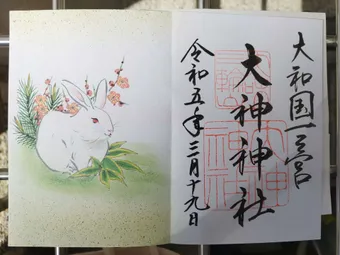 大和国一之宮
大神神社
令和五年三月十九日